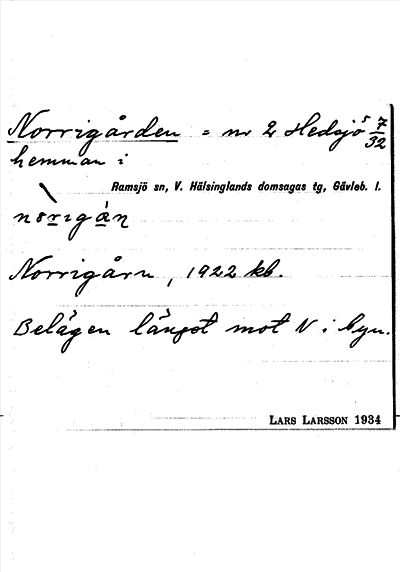 Norrigården = nr 2 Hedsjö 5 7/32
hemman i
Ramsjö sn, V. Hälsinglands domsagas tg, Gävleb. l.
Norrigårn, 1922 kb.
Belägen längst mot N i byn.
LARS LARSSON 1934